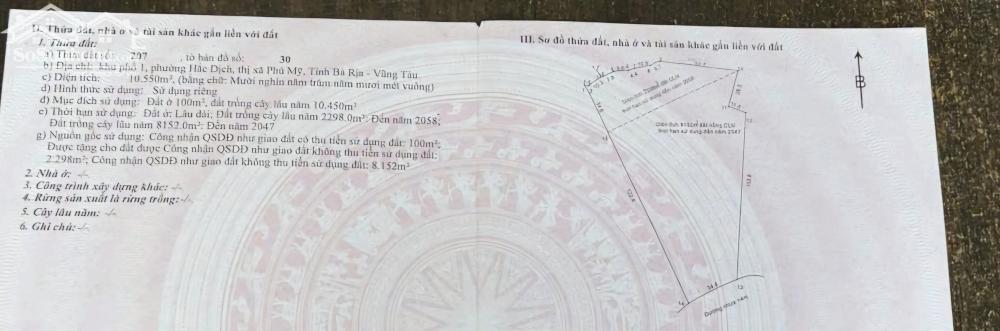 II. Thửa đất, nhà ở và tài sản khác gắn liền với đất
1. Thửa đất:
a) Thửa đất số: 297 , tờ bản đồ số: 30
b) Địa chỉ: khu phố 1, phường Hắc Dịch, thị xã Phú Mỹ, Tỉnh Bà Rịa - Vũng Tàu
c) Diện tích: 10.550m², (bằng chữ: Mười nghìn năm trăm năm mươi mét vuông)
d) Hình thức sử dụng: Sử dụng riêng
đ) Mục đích sử dụng: Đất ở 100m², đất trồng cây lâu năm 10.450m²
e) Thời hạn sử dụng: Đất ở: Lâu dài; Đất trồng cây lâu năm 2298.0m²: Đến năm 2058;
Đất trồng cây lâu năm 8152.0m²: Đến năm 2047
g) Nguồn gốc sử dụng: Công nhận QSDĐ như giao đất có thu tiền sử dụng đất: 100m²;
Được tặng cho đất được Công nhận QSDĐ như giao đất không thu tiền sử dụng đất:
2.298m²; Công nhận QSDĐ như giao đất không thu tiền sử dụng đất: 8.152m²
2. Nhà ở: -/-
3. Công trình xây dựng khác: -/-
4. Rừng sản xuất là rừng trồng: -/-
5. Cây lâu năm: -/-
6. Ghi chú: -/-
III. Sơ đồ thửa đất, nhà ở và tài sản khác gắn liền với đất
B
thời hạn sử dụng đến năm 2058
Diện tích 8152m² đất trồng CLN
thời hạn sử dụng đến năm 2047
122.8
113.8
34.8
Đường nhựa 14m